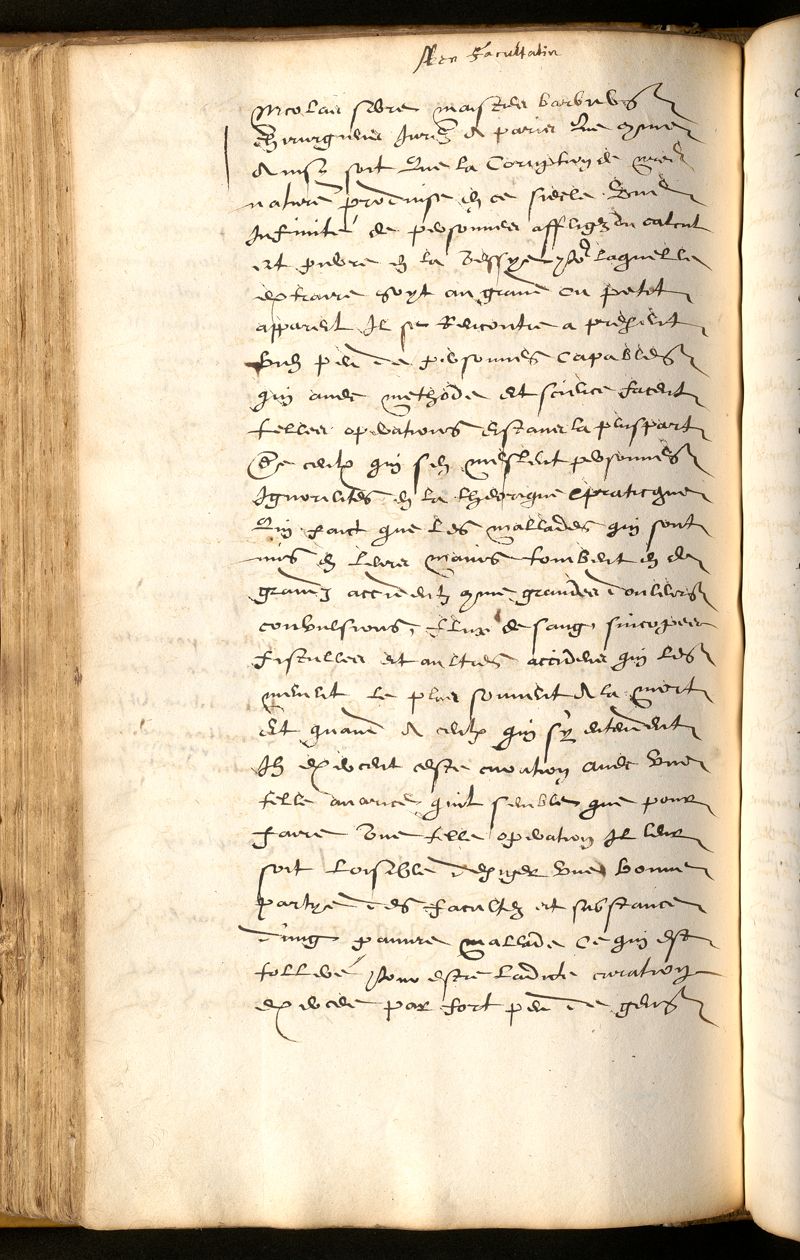 Facultatis
Nicolas serre maistre barbier
Chirurgien Juré a paris Que comme
ainsy soit Que la Coruption de nre
nature produise en ce siecle Une
Infinité de personnes affligez du calcul
et pierre en la vessye pour laquelle
extraire soyt au grand ou petit
appareil Il se Rencontre a present
bien peu de personnes Capables
qui avec methode et science facent
telles operations estans la pluspart
de ceulx qui s'en meslent personnes
Ignorantes en la theorique & praticque
Qui faict que les mallades qui sont
mis en leurs mains tombent en de
grandz accidentz comme grandes douleurs
convulsions, flux de sang, sincopes
fistulles et aultres accidens qui les
meinent le plus souvent a la mort
Et quand a ceulx qui s'y entendent
Ilz exercent ceste curation avec une
telle avarice quil semble que pour
faire une telle operation Il leur
soit loisible d'exiger une bonne
partye des facultez et substance
d'ung pauvre mallade Ce qui est
tolleré pour estre ladicte curation
exercee par fort peu de gens